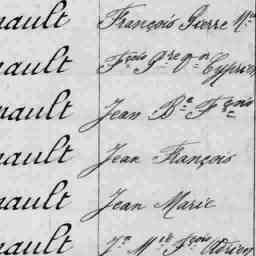 nault François Pierre M
nault Fçois Pre Cyprien
nault Jean Bte Fçois
nault Jean François
nault Jean Marie
nault Jn Mie Fçois Adrien